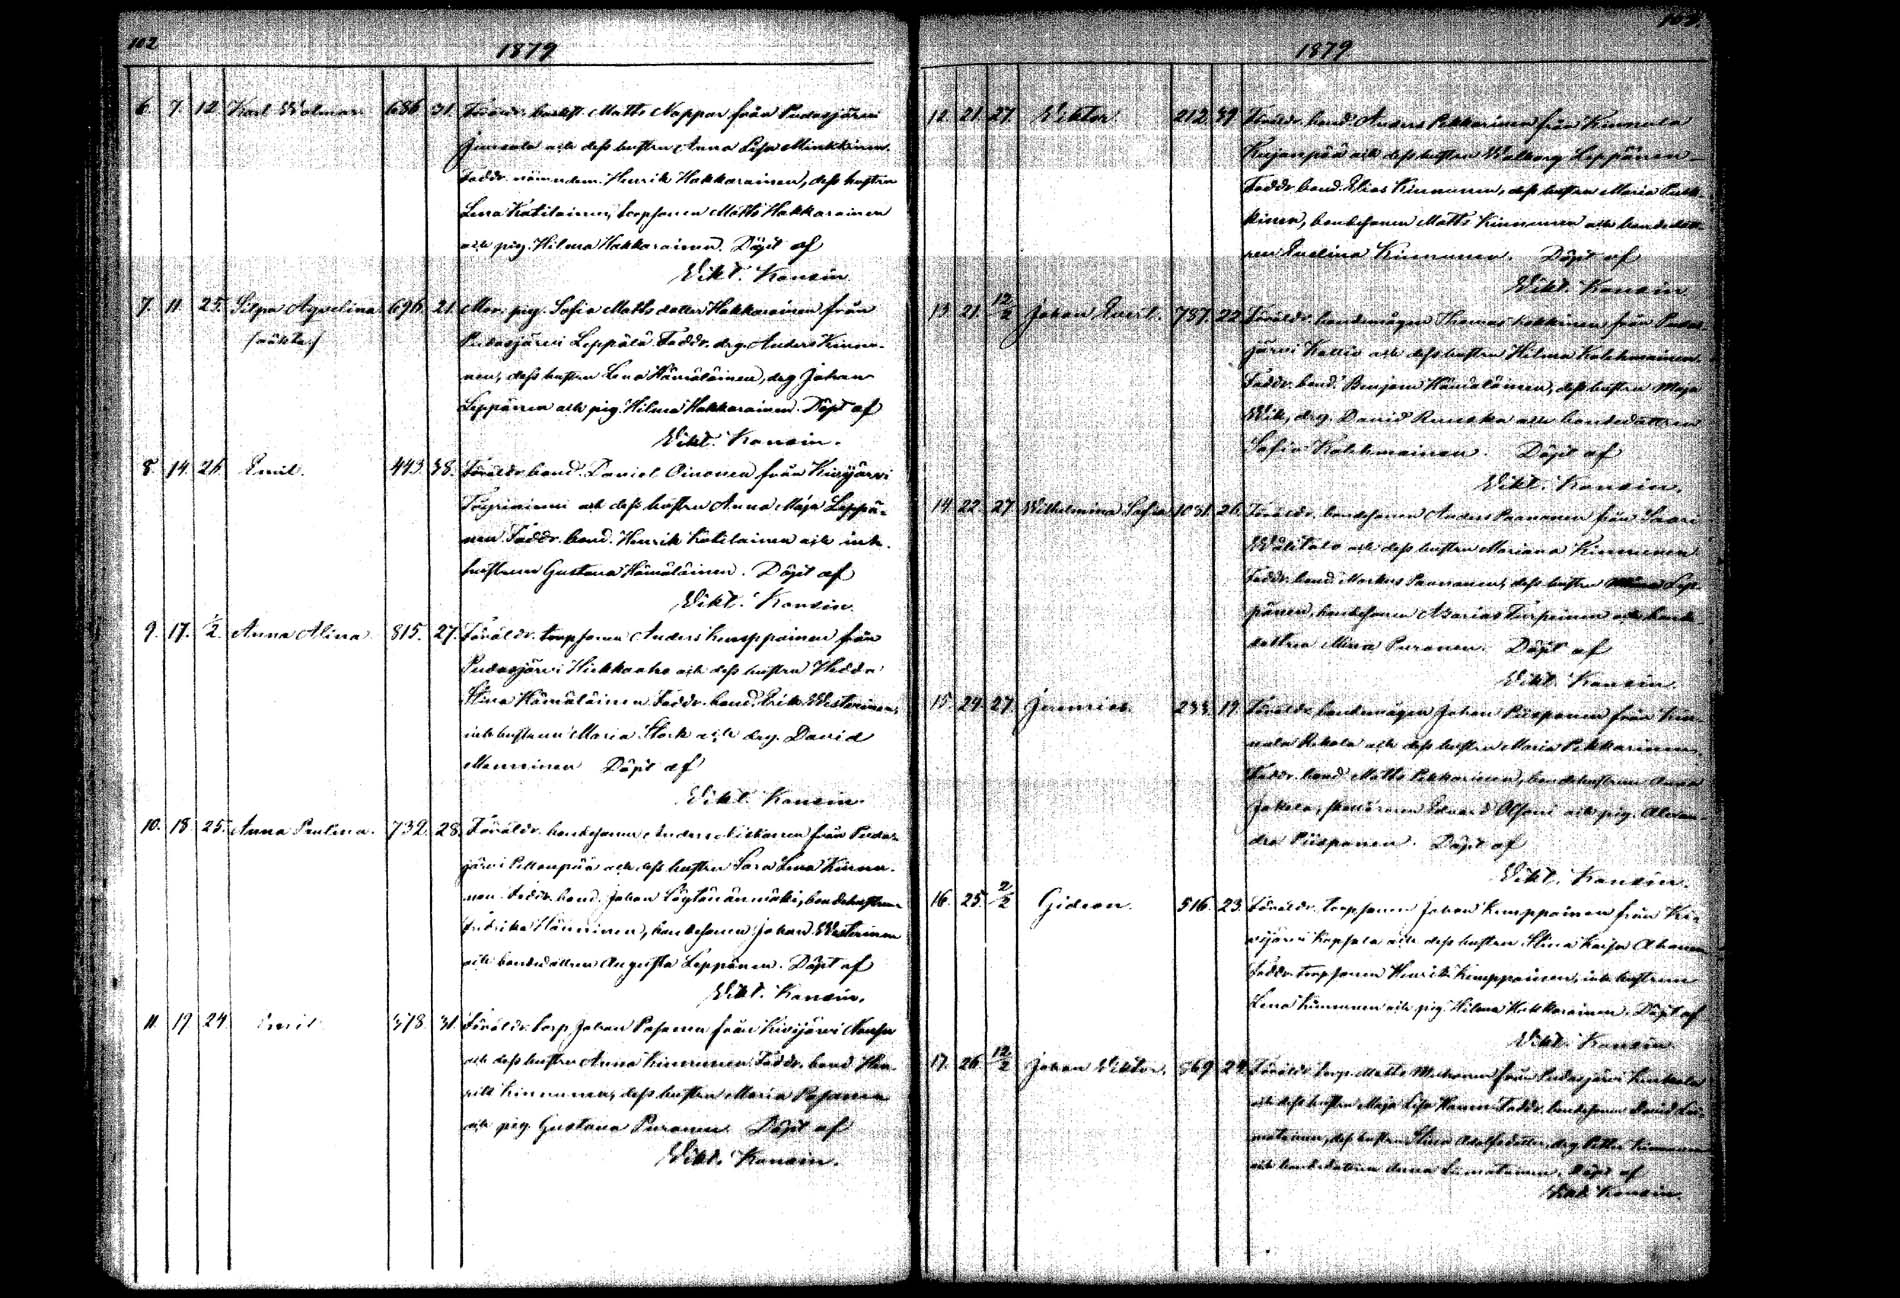 102
1879
6. 7. 12 Karl Wolmar 686. 31. Föräldr. Matts Noppar från Pudasjärvi
Junsala och dess hustru Anna Lisa Minkkinen.
Faddr. nämndem. Henrik Hakkarainen, dess hustru
Lena Kotilainen, torpsonen Matts Hakkarainen
och pig. Hilma Hakkarainen. Döpt af
Vikt. Konsin
7. 11. 25. Silja Aqvelina 696. 21. Mor. pig. Sofia Mattsdotter Hakkarainen från
(oäkta)
Pudasjärvi Leppälä. Faddr. drg. Anders Kinnu-
nen, dess hustru Lena Hämäläinen, drg Johan
Leppänen och pig. Hilma Hakkarainen. Döpt af
Vikt. Konsin.
8. 14. 26. Emil. 443. 38. Föräldr. bond. Daniel Oinonen från Kivijärvi
och dess hustru Anna Maja Leppä-
nen. Faddr. bond. Henrik Kotilainen och inh.
hustrun Gustava Hämäläinen. Döpt af
Vikt. Konsin.
9. 17. 1/2. Anna Alina 815. 27. Föräldr. torpsonen Anders Kumppainen från
Pudasjärvi Hiekkaaho och dess hustru Hedda
Stina Hämäläinen. Faddr. bond. Erik Westerinen,
inh. hustrun Maria Stork och drg. David
Manninen Döpt af
Vikt. Konsin.
10. 18. 25. Anna Paulina. 732. 28. Föräldr. bondesonen Anders Niskanen från Pudas-
järvi och dess hustru Sara Lena Kinnu-
nen. Faddr. bond. Johan bondehustrun
Fredrika Hänninen, bondesonen Johan Westerinen
och bondedottren Augusta Leppänen. Döpt af
Vikt. Konsin.
11. 19. 24. Emil 378. 31. Föräldr. torp. Johan Pasanen från Kivijärvi
och dess hustru Anna Kinnunen. Faddr. bond. Hen-
rik Kinnunen, dess hustru Maria Pasanen
och pig. Gustava Puranen. Döpt af
Vikt. Konsin.
103
1879.
12. 21. 27. Viktor 212. 39. Föräldr. bond. Anders Pekkarinen från Kinnula
och dess hustru Walborg Leppänen.
Faddr. bond. Elias Kinnunen, dess hustru Maria Pulk-
kinen, bondesonen Matts Kinnunen och bondedott-
ren Evelina Kinnunen. Döpt af
Vikt. Konsin
13. 21. 12/2 Johan Evert. 787. 22. Föräldr. bondemågen Thomas Kokkinen från Pudas-
järvi Kallio och dess hustru Hilma Kolehmainen.
Faddr. bond. Benjam Hämäläinen, dess hustru Maja
Wik, drg. David Ranska och bondedottren
Sofia Kolehmainen. Döpt af
Vikt. Konsin.
14. 22. 27. Wilhelmina Sofia 1081. 26. Föräldr. bondesonen Anders Paananen från Saari
Wälitalo och dess hustru Mariana Kinnunen
Faddr. bond. Markus Paananen, dess hustru Lep-
pänen, bondesonen Asarias Turpeinen och bonde-
dottren Mina Puranen. Döpt af
Vikt. Konsin.
15. 24. 27. Jeremias. 233. 19. Föräldr. bondemågen Johan Piispanen från Kin-
nula och dess hustru Maria Pekkarinen.
Faddr. bond. Matts Pekkarinen, bondehustrun Anna
Jokela, Edvard och pig. Alexan-
dra Piispanen. Döpt af
Vikt. Konsin.
16. 25. 2/2 Gideon. 516. 23. Föräldr. torpsonen Johan Kumppainen från Ki-
vijärvi och dess hustru Stina Kaisa Ahonen
Faddr. torpsonen Henrik Kumppainen, inh. hustrun
Lena Kinnunen och pig. Hilma Hakkarainen. Döpt af
Vikt. Konsin
17. 26. 12/2 Johan Viktor. 869. 24. Föräldr. torp. Matts från Pudasjärvi
och dess hustru Maja Lisa Faddr. bondesonen David Lii-
matainen, dess hustru Stina Adolfsdotter, drg. Petter Kinnunen
och bondedottren Anna Liimatainen. Döpt af
Vikt. Konsin